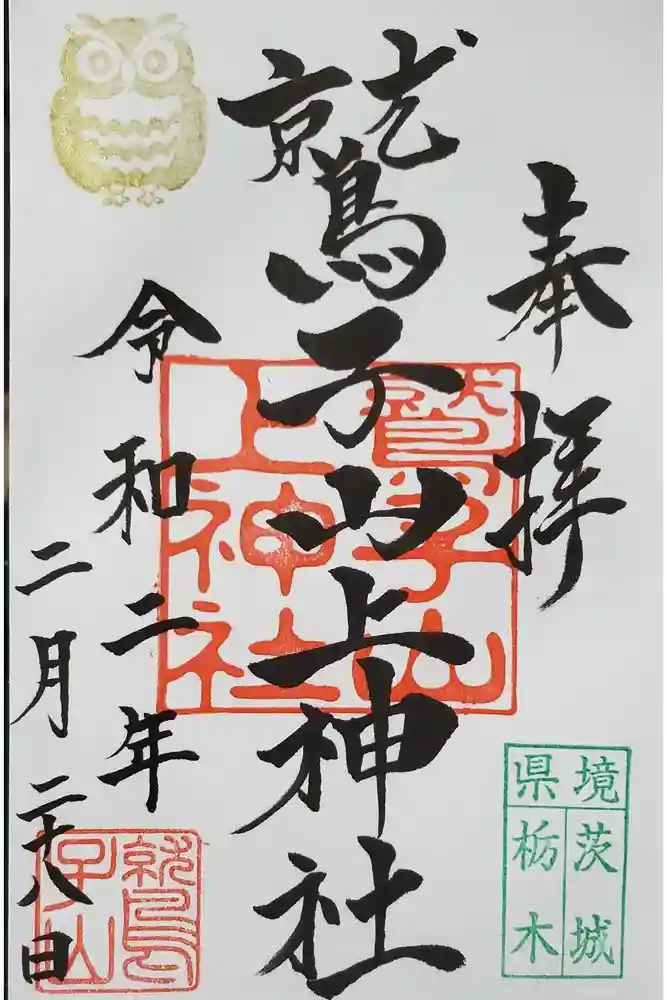 奉拝
鷲子山上神社
令和二年
二月二十八日
鷲子山
上神社
県境
茨城
栃木
鷲
子山